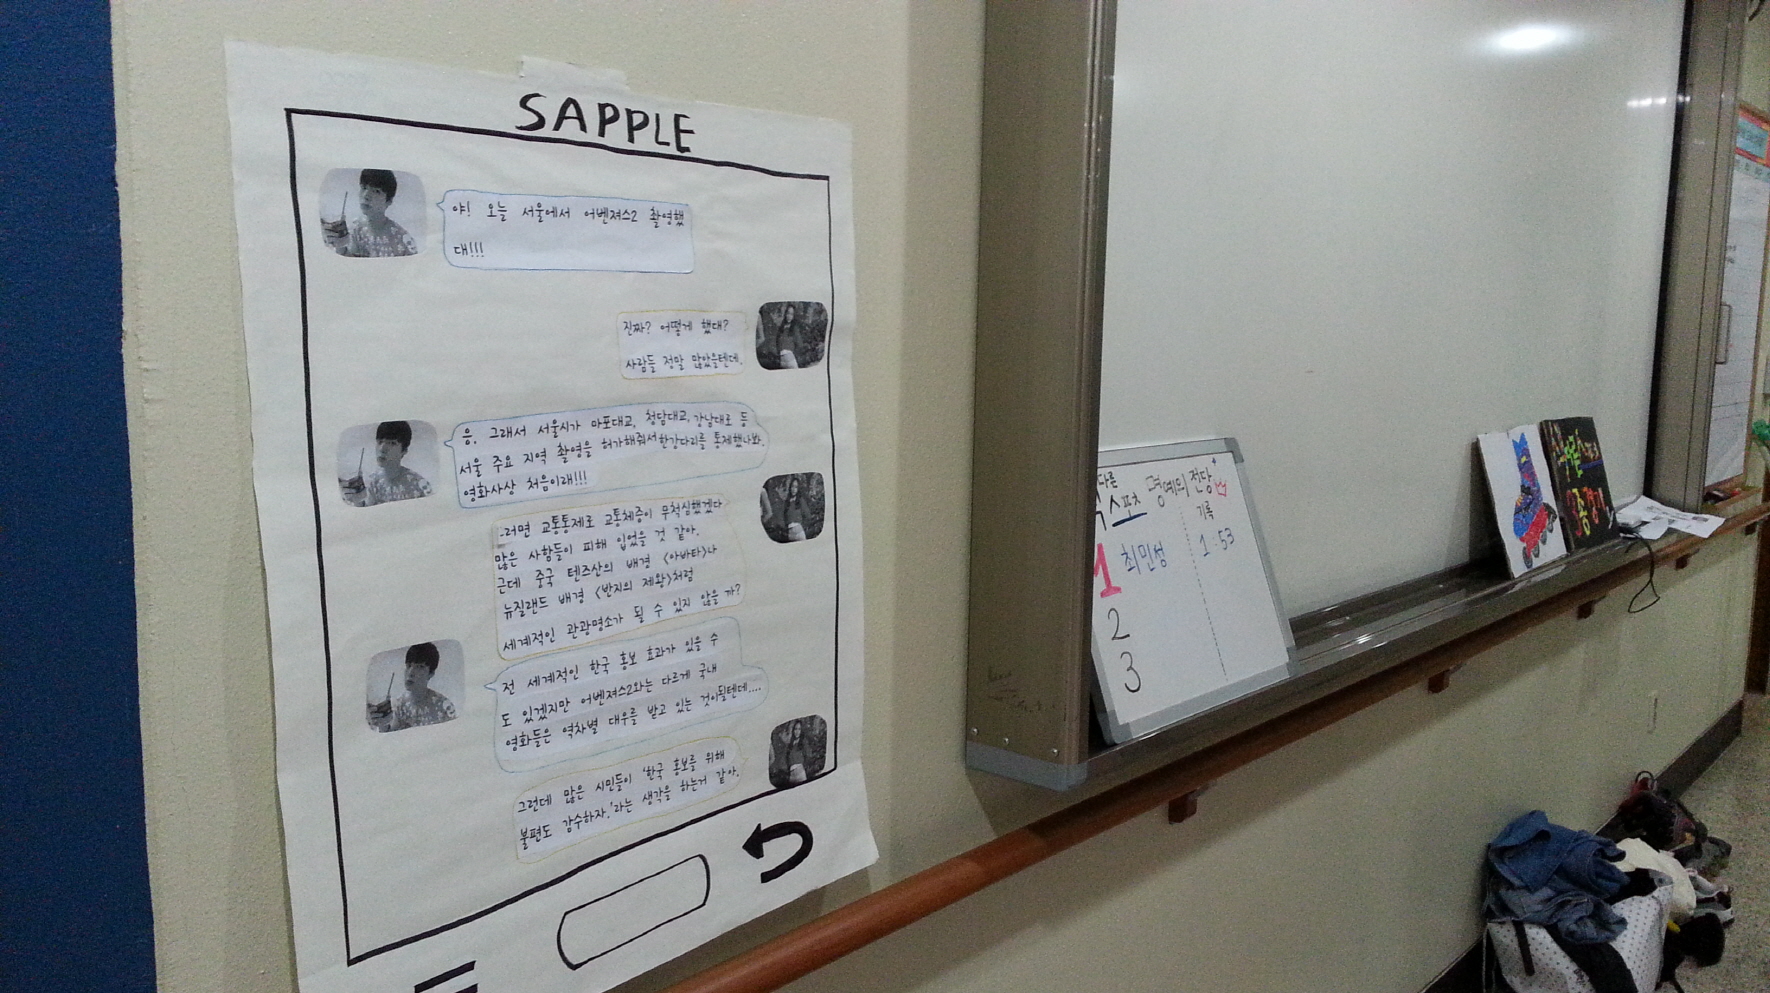 SAPPLE
야! 오늘 서울에서 어벤져스2 촬영했
대!!!
진짜? 어떻게 했대?
사람들 정말 많았을텐데.
응. 그래서 서울시가 마포대교, 청담대교, 강남대로 등
서울 주요 지역 촬영을 허가해줘서 한강다리를 통제했나봐.
영화사상 처음이래!!!
그러면 교통통제로 교통체증이 무척심했겠다
많은 사람들이 피해 입었을 것 같아.
근데 중국 텐즈산의 배경 <아바타>나
뉴질랜드 배경 <반지의 제왕>처럼
세계적인 관광명소가 될 수 있지 않을까?
전 세계적인 한국 홍보 효과가 있을 수
도 있겠지만 어벤져스2와는 다르게 국내
영화들은 역차별 대우를 받고 있는 것이될텐데....
그런데 많은 시민들이 '한국 홍보를 위해
불편도 감수하자.'라는 생각을 하는거 같아.
다른
스포츠 명예의 전당
기록
1 최민성 1:53
2
3